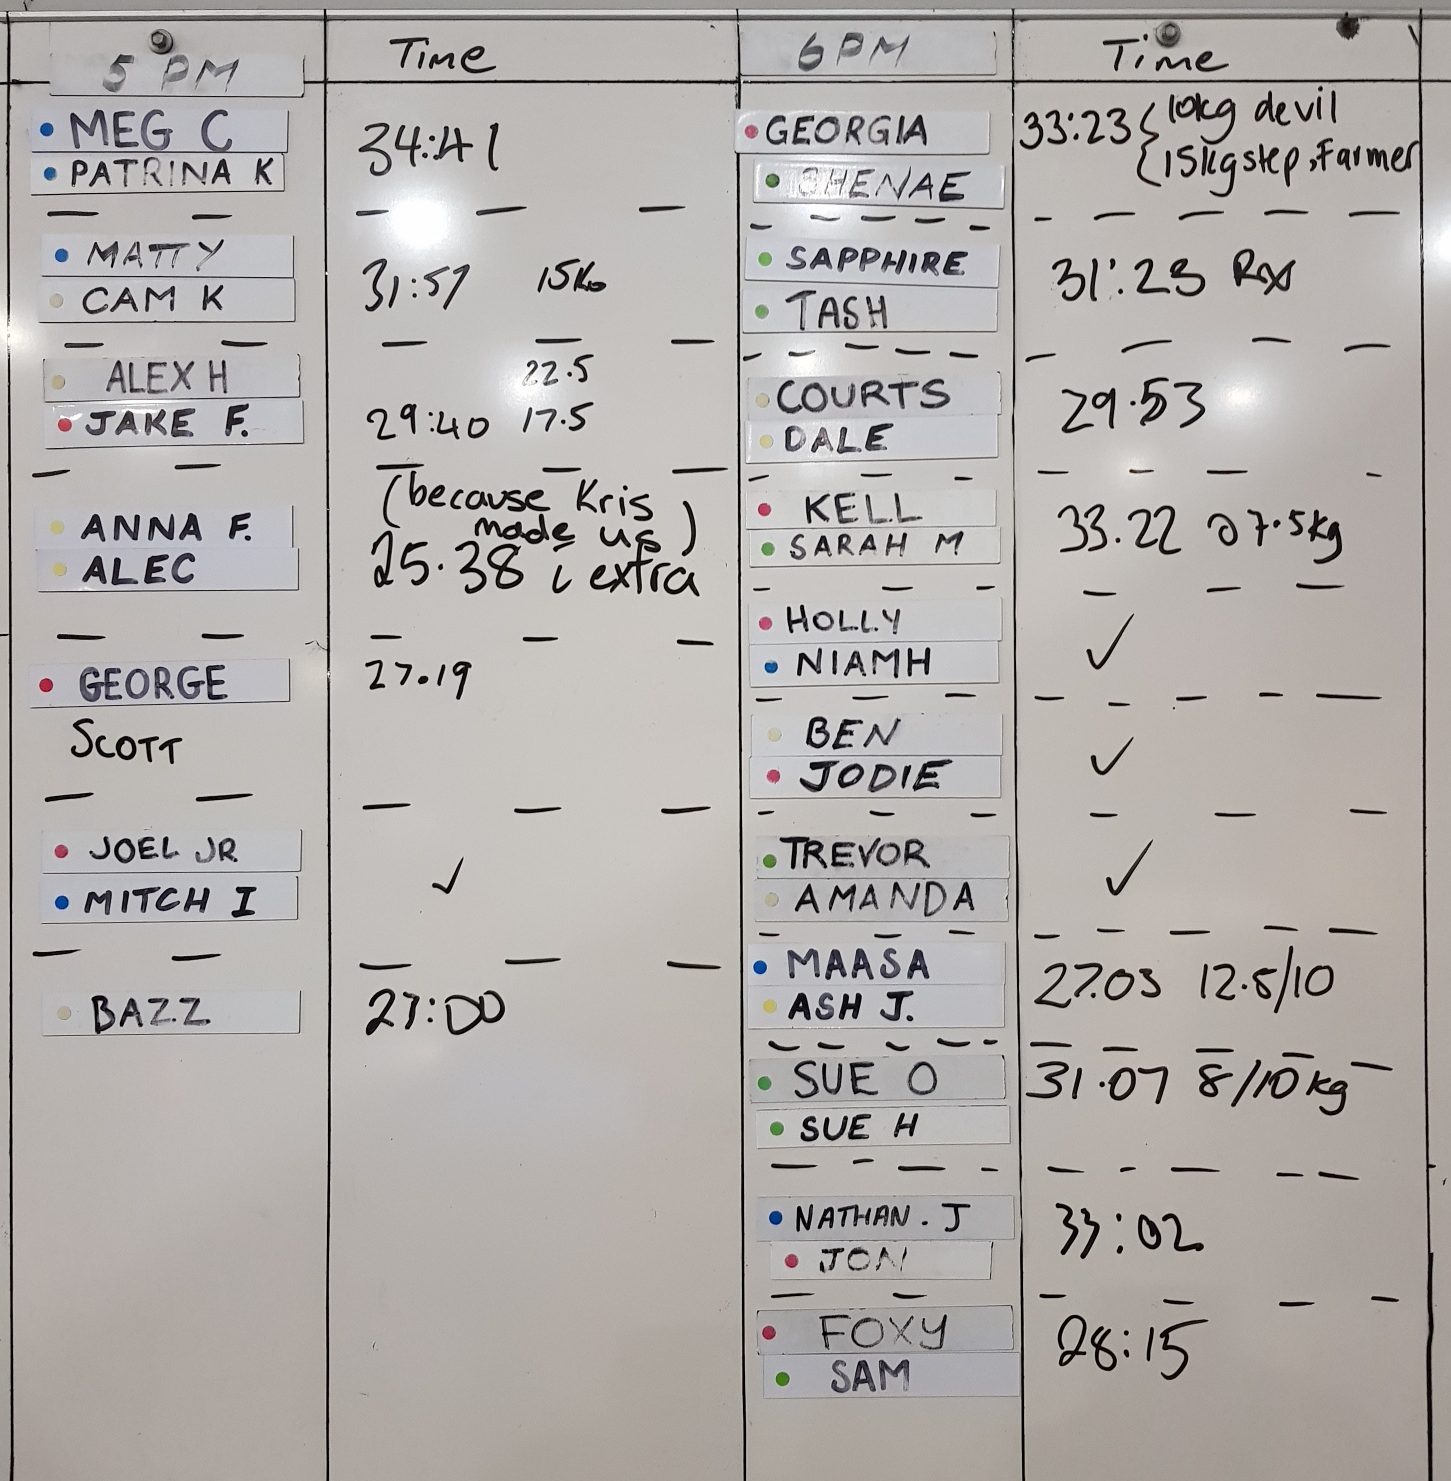 5 PM
Time
MEG C
PATRINA K
34:41
MATTY
CAM K
31:57 15KG
ALEX H
22.5
JAKE F.
29:40 17.5
(because Kris
made us)
ANNA F.
ALEC
25.38 c extra
GEORGE
27.19
SCOTT
JOEL JR
MITCH I
✓
BAZZ
27:00
6PM
Time
GEORGIA
SHENAE
33:23 { 10kg devil
{ 15kg step, Farmer
SAPPHIRE
TASH
31:23 RX
COURTS
DALE
29.53
KELL
SARAH M
33.22 @ 7.5kg
HOLLY
NIAMH
✓
BEN
JODIE
✓
TREVOR
AMANDA
✓
MAASA
ASH J.
27.03 12.5/10
SUE O
SUE H
31.07 8/10kg
NATHAN. J
JON
33:02
FOXY
SAM
28:15